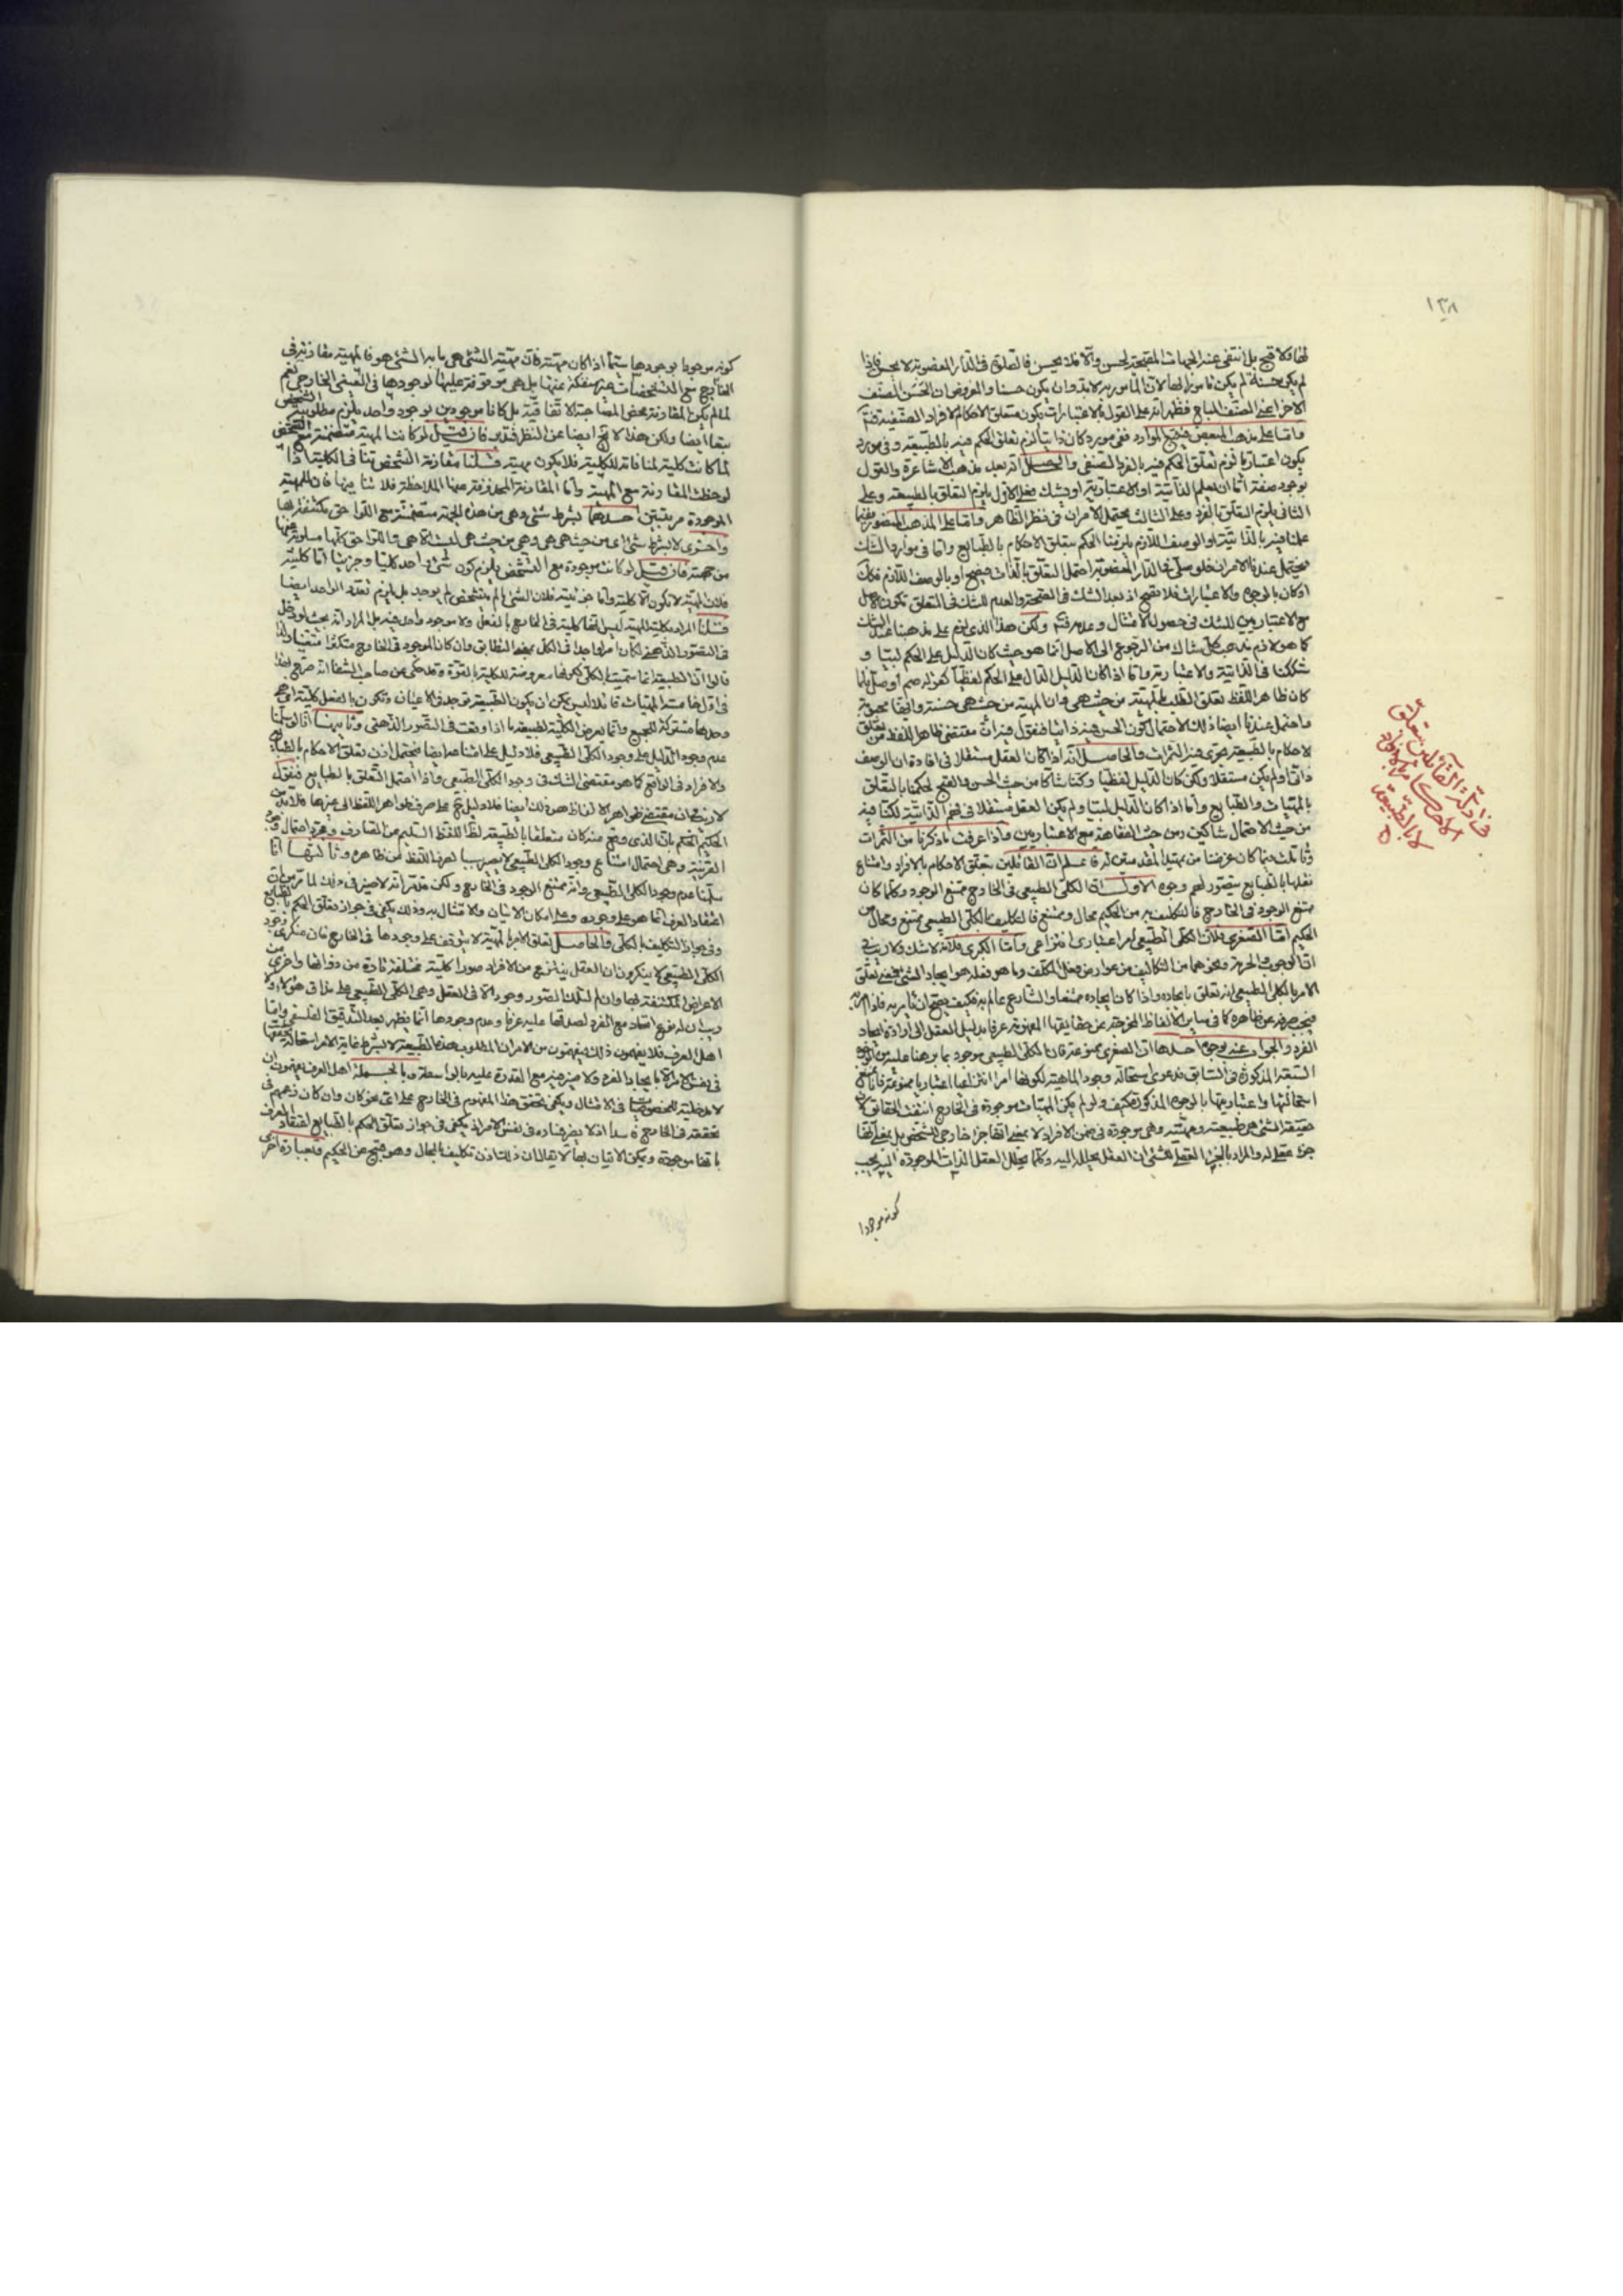 ١٣٨
لها فلا قبح بل انتفى عنه الجهات المقبحة لحسن والا فلا يحسن فالصلوة فى الدار المغصوبة لا يحسن فاذا
لم يكن حسنة لم يكن مامورا بها لان المامور به لابد وان يكون حسنا والمفروض ان الحسن الصنف
الاخر اعنى الصنف المباح فظهر انه على القول بالاعتبارات يكون متعلق الاحكام الافراد الصنفية
واما على مذهب البعض فيتبع الموارد ففى مورد كان ذاتيا لزم تعلق الحكم فيه بالطبيعة وفى مورد
يكون اعتباريا لزم تعلق الحكم فيه بالفرد الصنفى والحاصل انه بعد مذهب الاشاعرة والقول
بوجود صفة اما ان يعلم الذاتية او الاعتبارية او يشك فعلى الاول يلزم التعلق بالطبيعة وعلى
الثانى يلزم التعلق بالفرد وعلى الثالث يحتمل الامران فى نظر الظاهر واما على المذهب المنصور
علمنا فيه بالذاتية او الوصف اللازم يلزمنا الحكم بتعلق الاحكام بالطبايع واما فى موارد الشك
فيحتمل عندنا الامران فلو صلى فى الدار المغصوبة احتمل التعلق بالذات فيصح او بالوصف اللازم فكك
او كان بالوجوه والاعتبارات فلا تصح اذ بعد الشك فى الصحة والعدم للشك فى التعلق تكون الاصل
مع الاعتباريين للشك فى حصول الامتثال وعدمه ولكن هذا الذى لزم على مذهبنا عند الشك
كما هو لازم مذهب كل شاك من الرجوع الى الاصل انما هو حيث كان الدليل على الحكم لبيا و
شككنا فى الذاتية والاعتبارية واما اذا كان الدليل الدال على الحكم لفظيا كقوله صم او صل
كان ظاهر اللفظ تعلق الطلب بالمهية من حيث هى وان المهية من حيث هى حسنة وايضا محبوبة
واحتمل عندنا ايضا ذلك لاحتمال كون الحسن فيه ذاتيا فنقول فيه ان مقتضى ظاهر اللفظ من تعلق
الاحكام بالطبيعة يجرى فيه الثمرات والحاصل انه اذا كان العقل مستقلا فى افادة ان الوصف
ذاتى او لم يكن مستقلا ولكن كان الدليل لفظيا وكنا شاكا من حيث الحسن والقبح لحكمنا بالتعلق
بالمهيات والطبايع واما اذا كان الدليل لبيا ولم يكن العقل مستقلا فى فهم الذاتية لكنا فيه
من حيث الاحتمال شاكين ومن حيث الفقاهة مع الاعتباريين واذا عرفت ما ذكرنا من الثمرات
الحكيم اما الصغرى فلان الكلى الطبيعى امر اعتبارى انتزاعى واما الكبرى فلانه لا شك ولا ريب فى
ان الوجوب والحرمة ونحوهما من التكاليف من عوارض فعل المكلف وما هو فعله هو ايجاد الشئ فمعنى تعلق
الامر بالكلى الطبيعى انه تعلق بايجاده واذا كان ايجاده ممتنعا والشارع عالم به فكيف يصح ان يامر به فاذا امر به
فيجب صرفه عن ظاهره كما فى ساير الالفاظ المخرجة عن حقايقها المفهومة عرفا بدليل العقل الى ارادة ايجاد
الفرد والجواب عنه بوجوه احدها ان الصغرى ممنوعة فان الكلى الطبيعى موجود بما برهنا عليه من الوجوه
السبعة المذكورة فى السابق فدعوى استحالة وجود الماهية لكونها امرا انتزاعيا اعتباريا ممنوعة
حقيقة الشئ هى طبيعته ومهيته وهى موجودة فى ضمن الافراد لا بمعنى انها جزء خارجى للشخص بل بمعنى انها
جزء عقلى له والمراد بالجزء العقلى للشئ ان العقل يحلله اليه وكلما يحلل العقل الذات الموجودة اليه يجب
كونه موجودا
فى ادلة القائلين بتعلق
الاحكام بالافراد
لا بالطبيعة
كونه موجودا بوجودها سيما اذا كان مهيته فان مهية الشئ هى ما به الشئ هو فالمهية مقارنة فى
الخارج مع المشخصات غير منفكة عنها بل هى موقوفة عليها لوجودها فى الضمن الخارجى نعم
لما لم يكن المقارنة محض المصاحبة الاتفاقية بل كانا موجودين لوجود واحد يلزم مطلوبية الشخص
تبعا ايضا ولكن هذا لا يخ ايضا عن النظر فتدبر فان قيل لو كانت المهية متضمنة مع التشخص
لما كانت كلية لمنافاته للكلية فلا يكون مهية قلنا مقارنة الشخص تنافى الكلية اذا
لوحظت المقارنة مع المهية واما المقارنة المجردة عنها الملاحظة فلا تنافيها فان للمهية
الموجودة مرتبتين احدهما بشرط شئ وهى من هذه الجهة متضمنة مع اللواحق مكتنفة بها
واخرى لا بشرط شئ اى من حيث هى هى وهى من حيث هى ليست الا هى واللواحق كلها مسلوبة عنها
من جهته فان قيل لو كانت موجودة مع التشخص يلزم كون شئ واحد كليا وجزئيا اما كلية
فلان المهية لا تكون الا كلية واما جزئية فلان الشئ ما لم يتشخص لم يوجد بل يلزم تعدد الواحد ايضا
قلنا المراد بكلية المهية ليس انها كلية فى الخارج بالفعل ولا موجود واحد فيه بل المراد انه بحيث لو دخل
فى التصور الذهنى لكان امرا واحدا فى الكل بمعنى التطابق وان كان الموجود فى الخارج متكثرا
قالوا ان الطبيعة انما سميت بالكلى لكونها معروضة للكلية بالقوة وقد حكى عن صاحب الشفا انه صرح بهذا
وحدها مشتركة للجميع وانما يعرض الكلية لطبيعة ما اذا وقعت فى التصور الذهنى وثانيها انا لو سلمنا
عدم وجود الدليل على وجود الكلى الطبيعى فلا دليل على امتناعه ايضا فيحتمل اذن تعلق الاحكام بالطبايع
والافراد فى الواقع كما هو مقتضى الشك فى وجود الكلى الطبيعى واذا احتمل التعلق بالطبايع فنقول
لا ريب فى ان مقتضى ظواهر الالفاظ هو ذلك ايضا فلا دليل على صرف ظواهر اللفظ الى غيرها فلابد من
القرينة وهى احتمال امتناع وجود الكلى الطبيعى لا يصير سببا لصرف اللفظ عن ظاهره وثالثها انا
سلمنا عدم وجود الكلى الطبيعى وانه ممتنع الوجود فى الخارج ولكن نقول انه لا ضير فى ذلك لما مر من ان
اعتقاد العرف انما هو على وجوده وعلى امكان الاتيان والامتثال به وذلك يكفى فى جواز تعلق الحكم بالطبايع
وفى جواز التكليف بالكلى والحاصل تعلق الامر بالمهية لا يتوقف على وجودها فى الخارج فان منكرى وجود
الكلى الطبيعى لا ينكرون ان العقل ينتزع من الافراد صورا كلية مختلفة تارة من ذواتها واخرى من
الاعراض المكتنفة بها وان لم لتلك الصور وجود الا فى العقل وهى الكلى الطبيعى على مذاق هؤلاء ولا
ريب ان له نوع اتحاد مع الفرد لصدقها عليه عرفا وعدم وجودها انما يظهر بعد التدقيق الفلسفى واما
اهل العرف فلا يفهمون ذلك ويفهمون من الامر ان المطلوب هذه الطبيعة لا بشرط غاية الامر استحالة تحققها
فى نفس الامر الا بايجاد الفرد ولا ضير فيه مع القدرة عليه بالواسطة وبالجملة اهل العرف يفهمون ان
لا مدخلية للخصوصيات فى الامتثال ويكفى تحقق هذا المفهوم فى الخارج على اى نحو كان وان كان زعمهم فى
تحققه فى الخارج فاسدا اذ لا يضر فساده فى نفس الامر اذ يكفى فى جواز تعلق الحكم بالطبايع اعتقاد العرف
بانها موجودة ويمكن الاتيان بها لا يقال ان ذلك اذن تكليف بالمحال وهو قبيح عن الحكيم وبعبارة اخرى